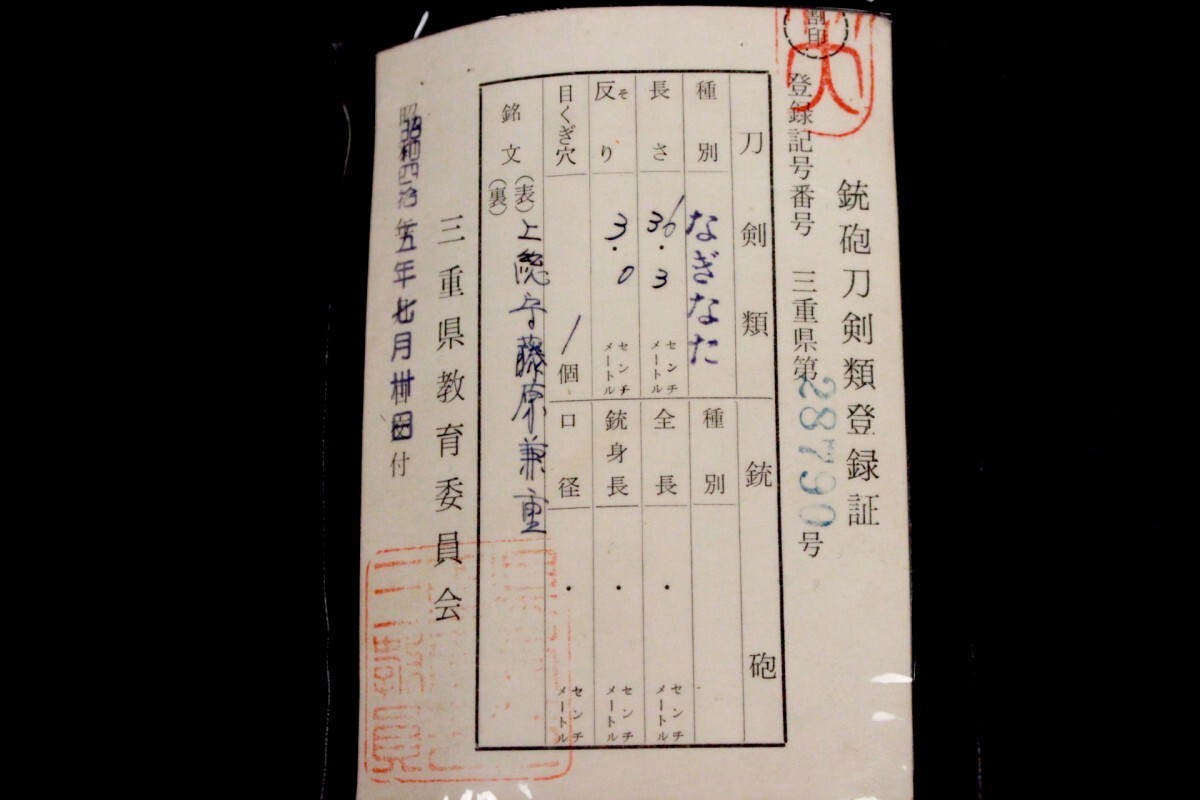 割印
銃砲刀剣類登録証
登録記号番号 三重県第28790号
刀剣類
種別 なぎなた
長さ 36.3 センチメートル
反り そり 3.0 センチメートル
目くぎ穴 1個
銃砲
種別
全長 . センチメートル
銃身長 . センチメートル
口径 . センチメートル
銘文 (表) 上総守藤原兼重
(裏)
三重県教育委員会
昭和四拾五年七月卅日付